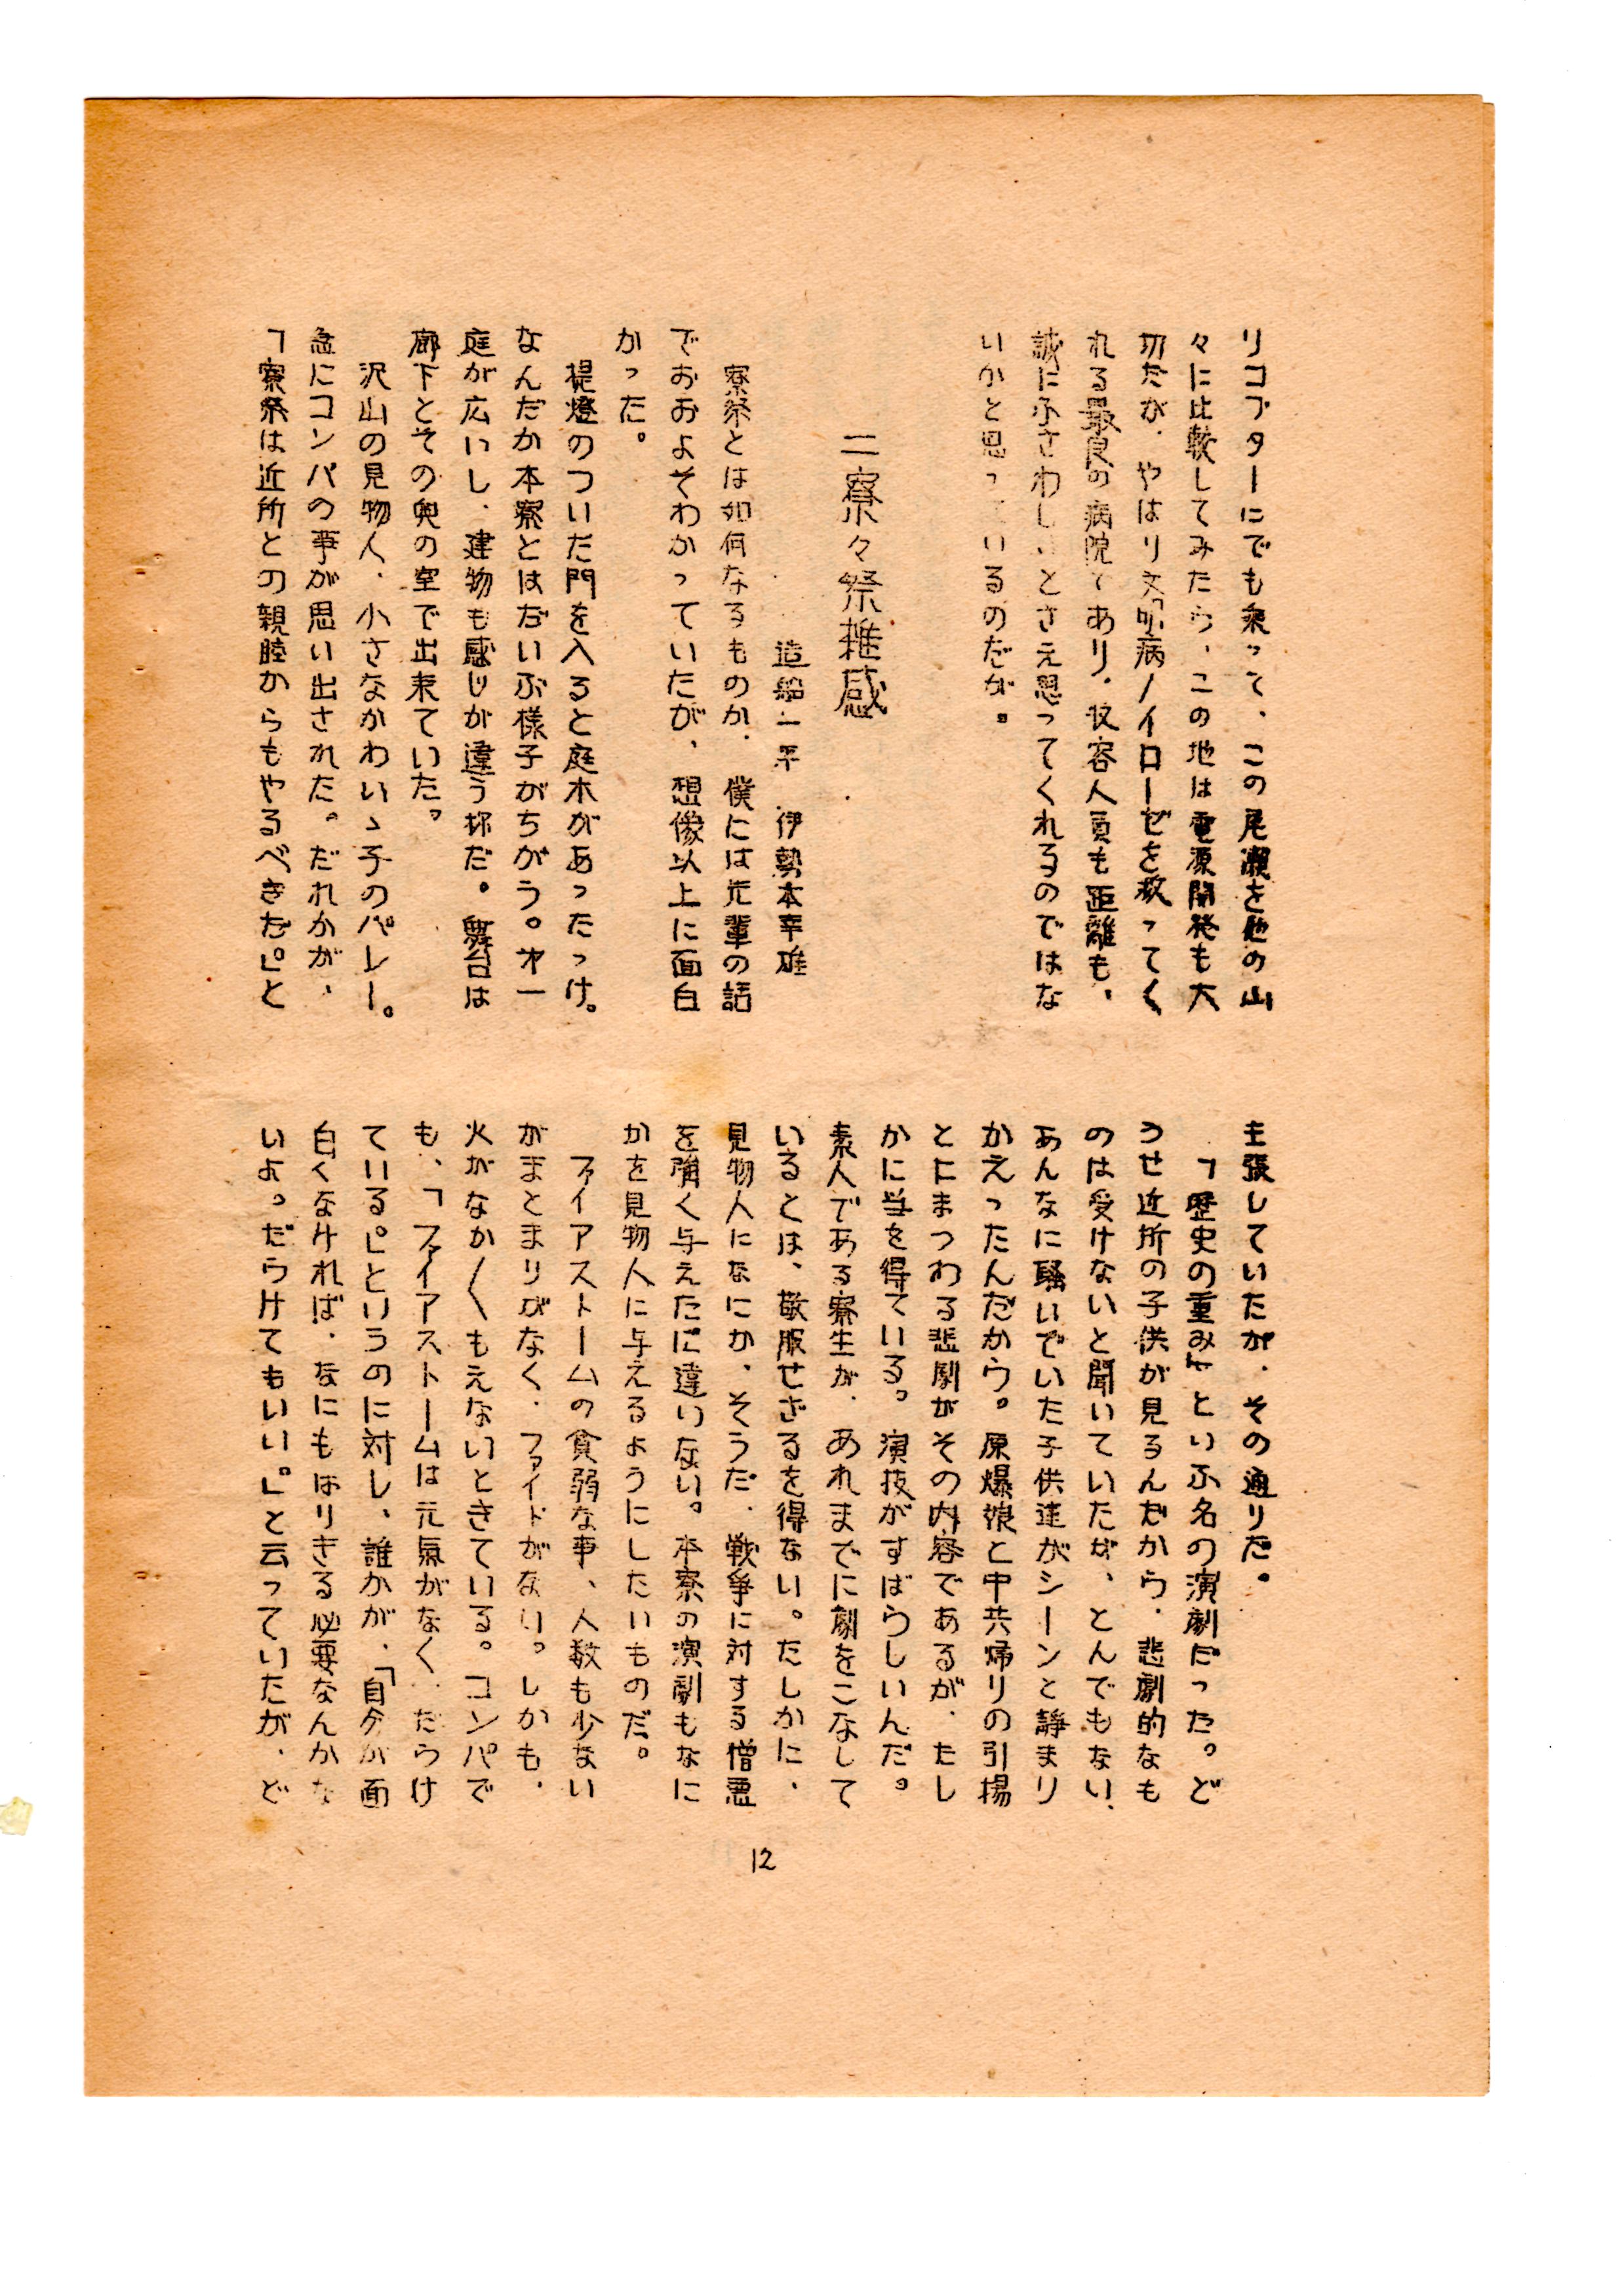 リコプターにでも乗って、この尾瀬を他の山
々に比較してみたら、この地は電源開発も大
切だが、やはり文明病ノイローゼを救ってく
れる最良の病院であり、収容人員も距離も、
誠にふさわしいとさえ思ってくれるのではな
いかと思っているのだが。
二寮々祭雑感
造船一年 伊勢本幸雄
寮祭とは如何なるものか、僕には先輩の話
でおおよそわかっていたが、想像以上に面白
かった。
提燈のついた門を入ると庭木があったっけ。
なんだか本寮とはだいぶ様子がちがう。才一
庭が広いし、建物も感じが違う様だ。舞台は
廊下とその奥の室で出来ていた。
沢山の見物人、小さなかわいゝ子のバレー。
急にコンパの事が思い出された。だれかが、
「寮祭は近所との親睦からもやるべきだ。」と
主張していたが、その通りだ。
「歴史の重み」といふ名の演劇だった。ど
うせ近所の子供が見るんだから、悲劇的なも
のは受けないと聞いていたが、とんでもない、
あんなに騒いでいた子供達がシーンと静まり
かえったんだから。原爆娘と中共帰りの引揚
とにまつわる悲劇がその内容であるが、たし
かに当を得ている。演技がすばらしいんだ。
素人である寮生が、あれまでに劇をこなして
いるとは、敬服せざるを得ない。たしかに、
見物人になにか、そうだ、戦争に対する憎悪
を強く与えたに違いない。本寮の演劇もなに
かを見物人に与えるようにしたいものだ。
ファイアストームの貧弱な事、人数も少ない
がまとまりがなく、ファイドがない。しかも、
火がなか〱もえないときている。コンパで
も、「ファイアストームは元氣がなく、だらけ
ている。」というのに対し、誰かが、「自分が面
白くなければ、なにもはりきる必要なんかな
いよ。だらけてもいい。」と云っていたが、ど
12